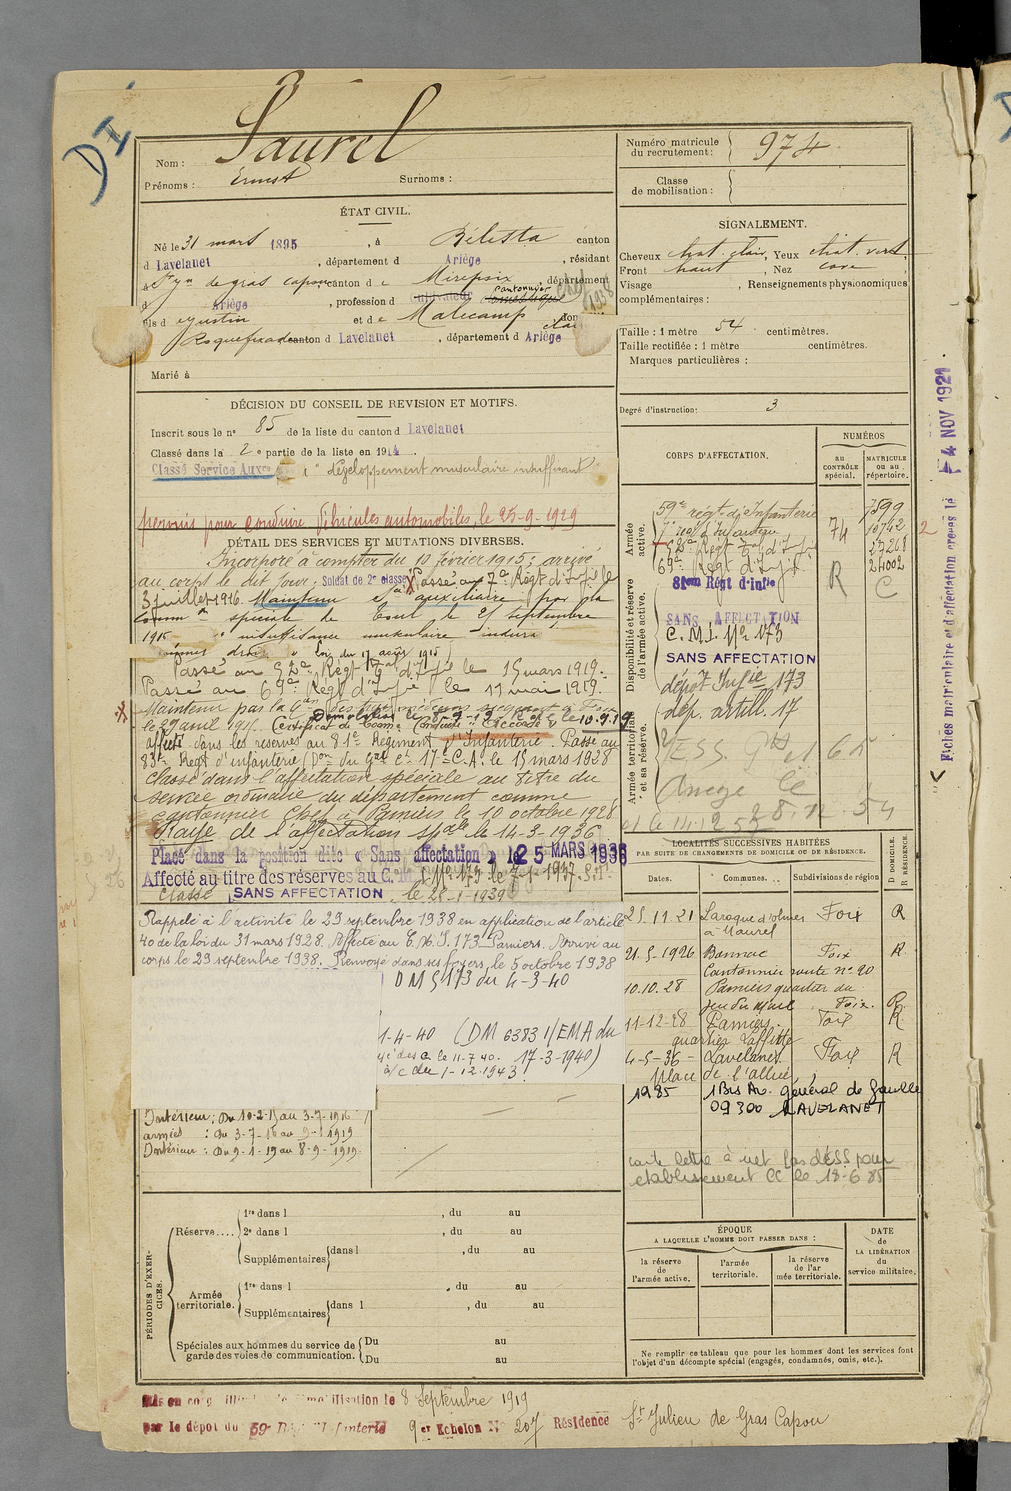 DI
Nom : Saurel
Prénoms : Ernest Surnoms :
Numéro matricule du recrutement : 974
Classe de mobilisation :
ÉTAT CIVIL.
Né le 31 mars 1895, à Bélesta canton
d Lavelanet, département d Ariège, résidant
à St Jn de gras capou canton d e Mirepoix département
d Ariège, profession d cultivateur cantonnier chef 1938
fils d Justin et de Malecamp dom
Roquefixade canton d Lavelanet, département d Ariège
Marié à
SIGNALEMENT.
Cheveux chat. clair, Yeux chat. vert
Front haut, Nez cave
Visage , Renseignements physionomiques
complémentaires :
Taille : 1 mètre 54 centimètres.
Taille rectifiée : 1 mètre centimètres.
Marques particulières :
Degré d'instruction : 3
DÉCISION DU CONSEIL DE REVISION ET MOTIFS.
Inscrit sous le n° 85 de la liste du canton d Lavelanet
Classé dans la 2e partie de la liste en 1914.
Classé Service Auxre "développement musculaire insuffisant"
permis pour conduire Véhicules automobiles, le 25-9-1929
DÉTAIL DES SERVICES ET MUTATIONS DIVERSES.
Incorporé à compter du 10 février 1915; arrivé
au corps le dit jour; Soldat de 2e classe Passé au 7e Régt d'Infie le
3 juillet 1916. Maintenu Sce auxiliaire par la
Common spéciale de Toul le 25 septembre
1915 "insuffisance musculaire
loi du 17 août 1915)
Passé au 52e Régt d'Infie le 15 mars 1919.
Passé au 69e Régt d'Infie le 11 mai 1919.
Maintenu par la
le 29 avril 1915. Certificat de Bonne Conduite "Accordé"
Démobilisé le 8-9-19 le 10.9.19
affecté dans les réserves au 81e Régiment d'Infanterie. Passé au
83e Régt d'infanterie (Don du Gal Ct 17e C.A. le 15 mars 1928
Classé dans l'affectation spéciale au titre du
service ordinaire du département comme
cantonnier chef à Pamiers le 10 octobre 1928
Rayé de l'affectation spale le 14-3-1936
Placé dans la position dite « Sans affectation » le 25 MARS 1936
Affecté au titre des réserves au C.M.I. N° 173 le 7-1-1937
Classé SANS AFFECTATION le 28-1-1939
Rappelé à l'activité le 29 septembre 1938 en application de l'article
40 de la loi du 31 mars 1928. Affecté au C.M.I. 173 Pamiers. Arrivé au
corps le 29 septembre 1938. Renvoyé dans ses foyers le 5 octobre 1938
DM 5173 du 4-3-40
1-4-40 (DM 6383 1/EMA du
le 11.7.40. 17-3-1940)
du 1-12-1943
Intérieur : Du 10-2-15 au 3-7-1916
armées : Du 3-7-16 au 9-1-1919
Intérieur : Du 9-1-19 au 8-9-1919
CORPS D'AFFECTATION.
NUMÉROS
AU CONTRÔLE spécial.
MATRICULE ou au répertoire.
Armée active.
59e régt d'Infanterie 74 7599
7e régt d'Infanterie 10742 2
52e Régt d'Infie 27268
69e Régt d'Infie 24002
Disponibilité et réserve de l'armée active.
81eme Régt d'infie R C
SANS AFFECTATION
C.M.I. N° 173
SANS AFFECTATION
dépôt Infie 173
dép. artill. 17
Armée territoriale et sa réserve.
Ariège le
28.12.54
LOCALITÉS SUCCESSIVES HABITÉES
PAR SUITE DE CHANGEMENTS DE DOMICILE OU DE RÉSIDENCE.
Dates. Communes. Subdivisions de région D DOMICILE. R RÉSIDENCE.
25.11.21 Laroque d'olmes Foix R
à Maurel
21-5-1926 Bonnac Foix R.
Cantonnier route n° 20
10.10.28 Pamiers quartier du
jeu du mail Foix. R
11-12-28 Pamiers Foix R
quartier Laffitte
4-5-36 - Lavelanet Foix R
Place de l'allée
1985 1 Bis Av. général de Gaulle
09300 LAVELANET
carte lettre à net
établissement CC le 18-6 85
PÉRIODES D'EXERCICES.
Réserve.... 1re dans l , du au
2e dans l , du au
Supplémentaires dans l , du au
Armée territoriale. 1re dans l , du au
Supplémentaires dans l , du au
Spéciales aux hommes du service de garde des voies de communication. Du au
Du au
ÉPOQUE
A LAQUELLE L'HOMME DOIT PASSER DANS :
la réserve de l'armée active.
l'armée territoriale.
la réserve de l'armée territoriale.
DATE de LA LIBÉRATION du service militaire.
Ne remplir ce tableau que pour les hommes dont les services font
l'objet d'un décompte spécial (engagés, condamnés, omis, etc.).
Mis en congé illimité de démobilisation le 8 Septembre 1919
par le dépôt du 59e Régt d'Infanterie 9er Echelon N° 207 Résidence St Julien de Gras Capou
Fiches matriculaire et d'affectation créées le 4 NOV 1921